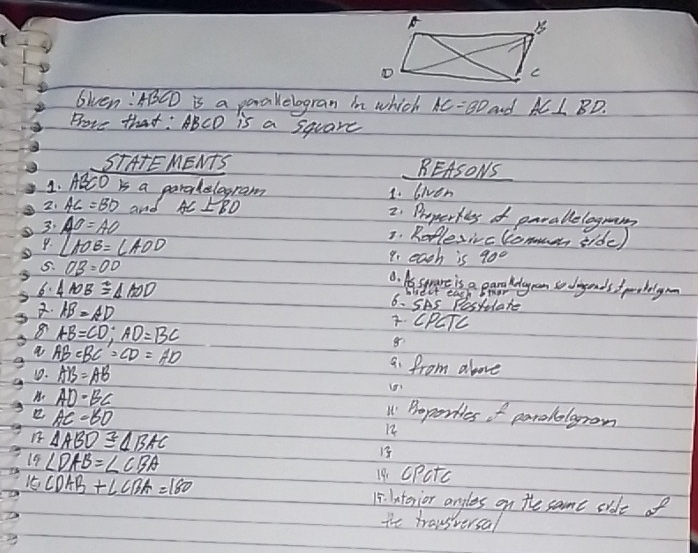 A B
D C
Given : ABCD is a parallelogram in which AC = BD and AC ⊥ BD.
Prove that : ABCD is a square
STATEMENTS REASONS
1. ABCD is a parallelogram 1. Given
2. AC = BD and AC ⊥ BD 2. Properties of parallelogram
3. AO = AO 3. Reflexive (common side)
4. ∠AOB = ∠AOD 4. each is 90°
5. OB = OD 5. As square is a parallelogram so diagonals of parallelogram
bisect each other
6. Δ AOB ≅ Δ AOD 6. SAS Postulate
7. AB = AD 7. CPCTC
8. AB = CD; AD = BC 8.
9. AB = BC = CD = AD 9. from above
10. AB = AB 10.
11. AD = BC 11. Properties of parallelogram
12. AC = BD 12.
13. Δ ABD ≅ Δ BAC 13.
14. ∠DAB = ∠CBA 14. CPCTC
15. ∠DAB + ∠CBA = 180 15. Interior angles on the same side of
the transversal